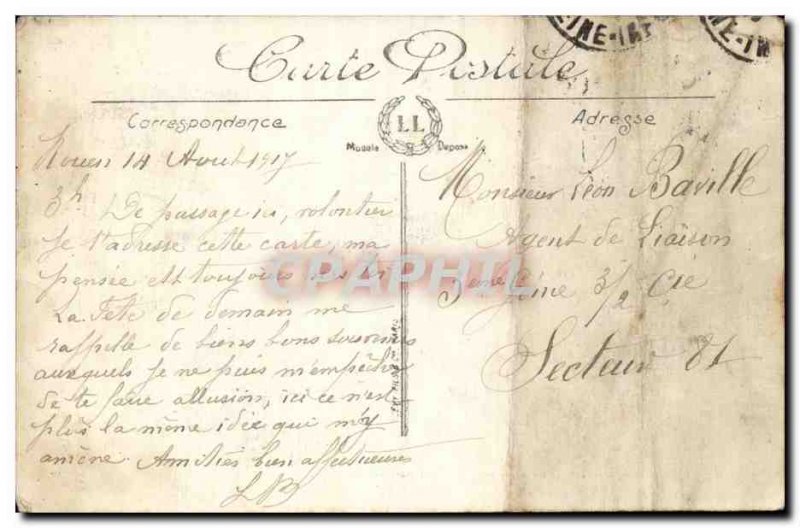 Carte Postale
Correspondance
LL
Modèle Déposé
Adresse
Rouen 14 Aout 1917
3h De passage ici, volontier
Je t'adresse cette carte, ma
pensée est toujours
La Fête de demain me
rappelle de biens bons souvenirs
auxquels je ne puis m'empêcher
de te faire allusion, ici ce n'est
plus la même idée qui m'y
amène. Amitiés bien affectueuses
LB
Monsieur Léon Baville
Agent de Liaison
Génie 3/2 Cie
Secteur 81
CPAPHIL